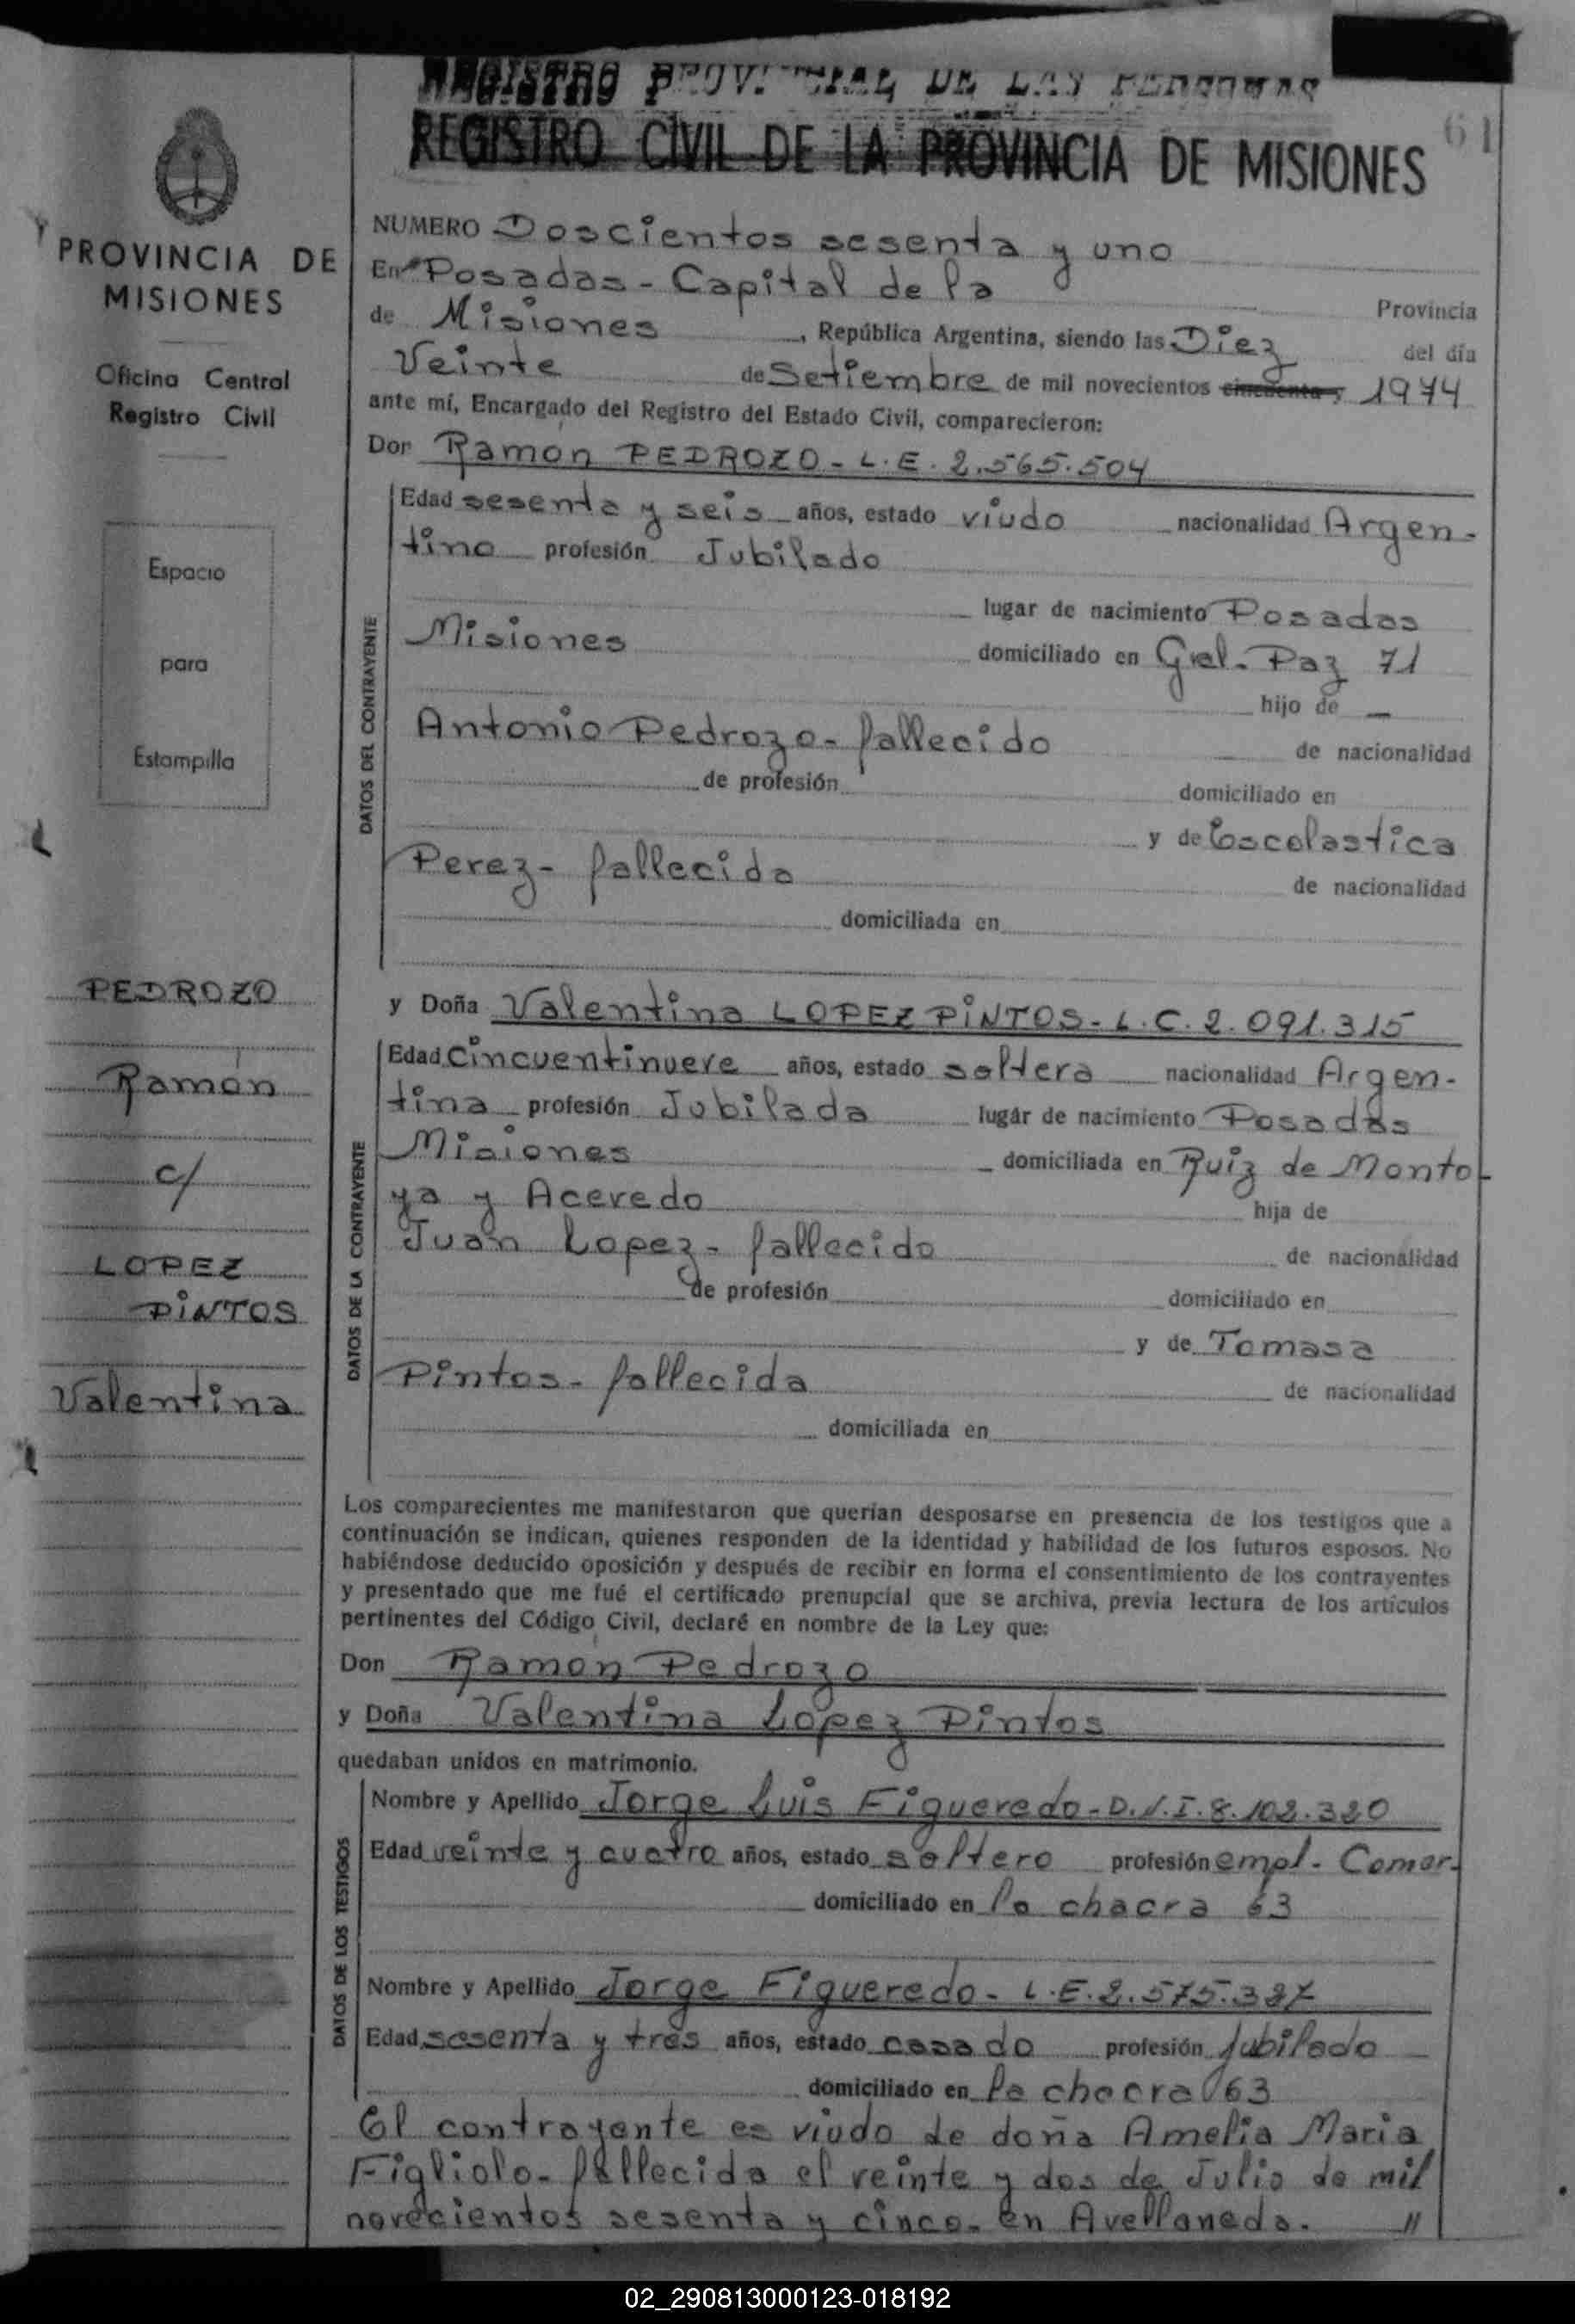 REGISTRO PROVINCIAL DE LAS PERSONAS
REGISTRO CIVIL DE LA PROVINCIA DE MISIONES
61
PROVINCIA DE
MISIONES
Oficina Central
Registro Civil
Espacio
para
Estampilla
PEDROZO
Ramón
c/
LOPEZ
PINTOS
Valentina
NUMERO Doscientos sesenta y uno
En Posadas - Capital de la Provincia
de Misiones, República Argentina, siendo las Diez del día
Veinte de Setiembre de mil novecientos cincuenta y 1974
ante mí, Encargado del Registro del Estado Civil, comparecieron:
Don Ramón PEDROZO - L.E. 2.565.504
DATOS DEL CONTRAYENTE
Edad sesenta y seis años, estado viudo nacionalidad Argen-
tino profesión Jubilado
lugar de nacimiento Posadas
Misiones domiciliado en Gral. Paz 71
hijo de -
Antonio Pedrozo - fallecido de nacionalidad
de profesión domiciliado en
y de Escolastica
Perez - fallecida de nacionalidad
domiciliada en
y Doña Valentina LOPEZ PINTOS - L.C. 2.091.315
DATOS DE LA CONTRAYENTE
Edad Cincuentinueve años, estado soltera nacionalidad Argen-
tina profesión Jubilada lugar de nacimiento Posadas
Misiones domiciliada en Ruiz de Monto-
ya y Acevedo hija de
Juan Lopez - fallecido de nacionalidad
de profesión domiciliado en
y de Tomasa
Pintos - fallecida de nacionalidad
domiciliada en
Los comparecientes me manifestaron que querían desposarse en presencia de los testigos que a
continuación se indican, quienes responden de la identidad y habilidad de los futuros esposos. No
habiéndose deducido oposición y después de recibir en forma el consentimiento de los contrayentes
y presentado que me fué el certificado prenupcial que se archiva, previa lectura de los artículos
pertinentes del Código Civil, declaré en nombre de la Ley que:
Don Ramon Pedrozo
y Doña Valentina Lopez Pintos
quedaban unidos en matrimonio.
DATOS DE LOS TESTIGOS
Nombre y Apellido Jorge Luis Figueredo - D.N.I. 8.102.320
Edad veinte y cuatro años, estado soltero profesión empl. Comer.
domiciliado en la chacra 63
Nombre y Apellido Jorge Figueredo - L.E. 2.575.387
Edad sesenta y tres años, estado casado profesión Jubilado
domiciliado en la chacra 63
El contrayente es viudo de doña Amelia Maria
Figliolo - fallecida el veinte y dos de Julio de mil
novecientos sesenta y cinco - en Avellaneda. //
02_290813000123-018192